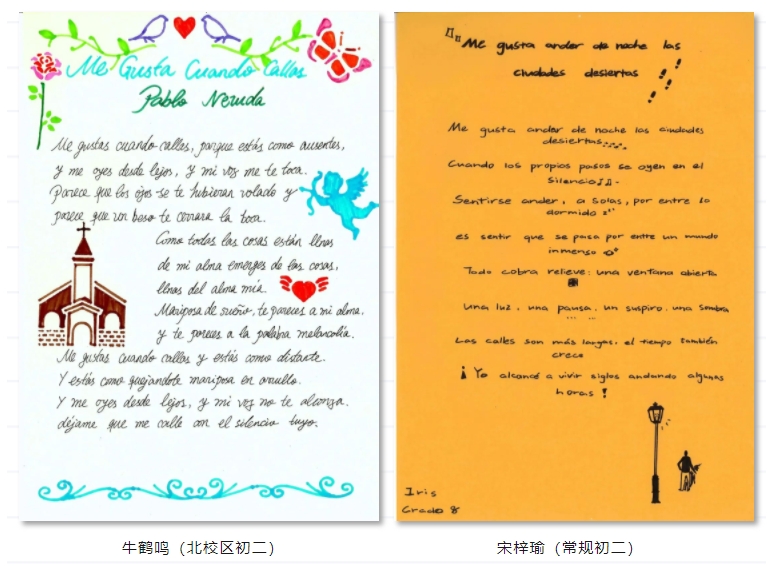 Me Gusta Cuando Callas
Pablo Neruda
Me gustas cuando callas, porque estás como ausentes,
y me oyes desde lejos, y mi voz me te toca.
Parece que los ojos se te hubieran volado y
parece que un beso te cerrara la toca.
Como todas las cosas están llnas
de mi alma emerges de las cosas,
llnas del alma mía.
Mariposa de sueño, te pareces a mi alma,
y te pareces a la palabra melancolía.
Me gustas cuando callas y estás como distante.
Y estás como quejandote mariposa en arrullo.
Y me oyes desde lejos, y mi voz no te alcanza.
déjame que me calle con el silencio tuyo.
牛鹤鸣（北校区初二）
Me gusta ander de noche las
ciudades desiertas
Me gusta andar de noche las ciudades
desiertas
Cuando los propios pasos se oyen en el
silencio
Sentirse ander, a solas, por entre lo
dormido
es sentir que se pasa por entre un mundo
inmenso
Todo cobra relieve: una ventana abierta
una luz, una pausa, un suspiro, una sombra
Las calles son más largas, el tiempo también
crece
¡ Yo alcancé a vivir siglos andando algunas
horas !
Iris
Grado 8
宋梓瑜（常规初二）